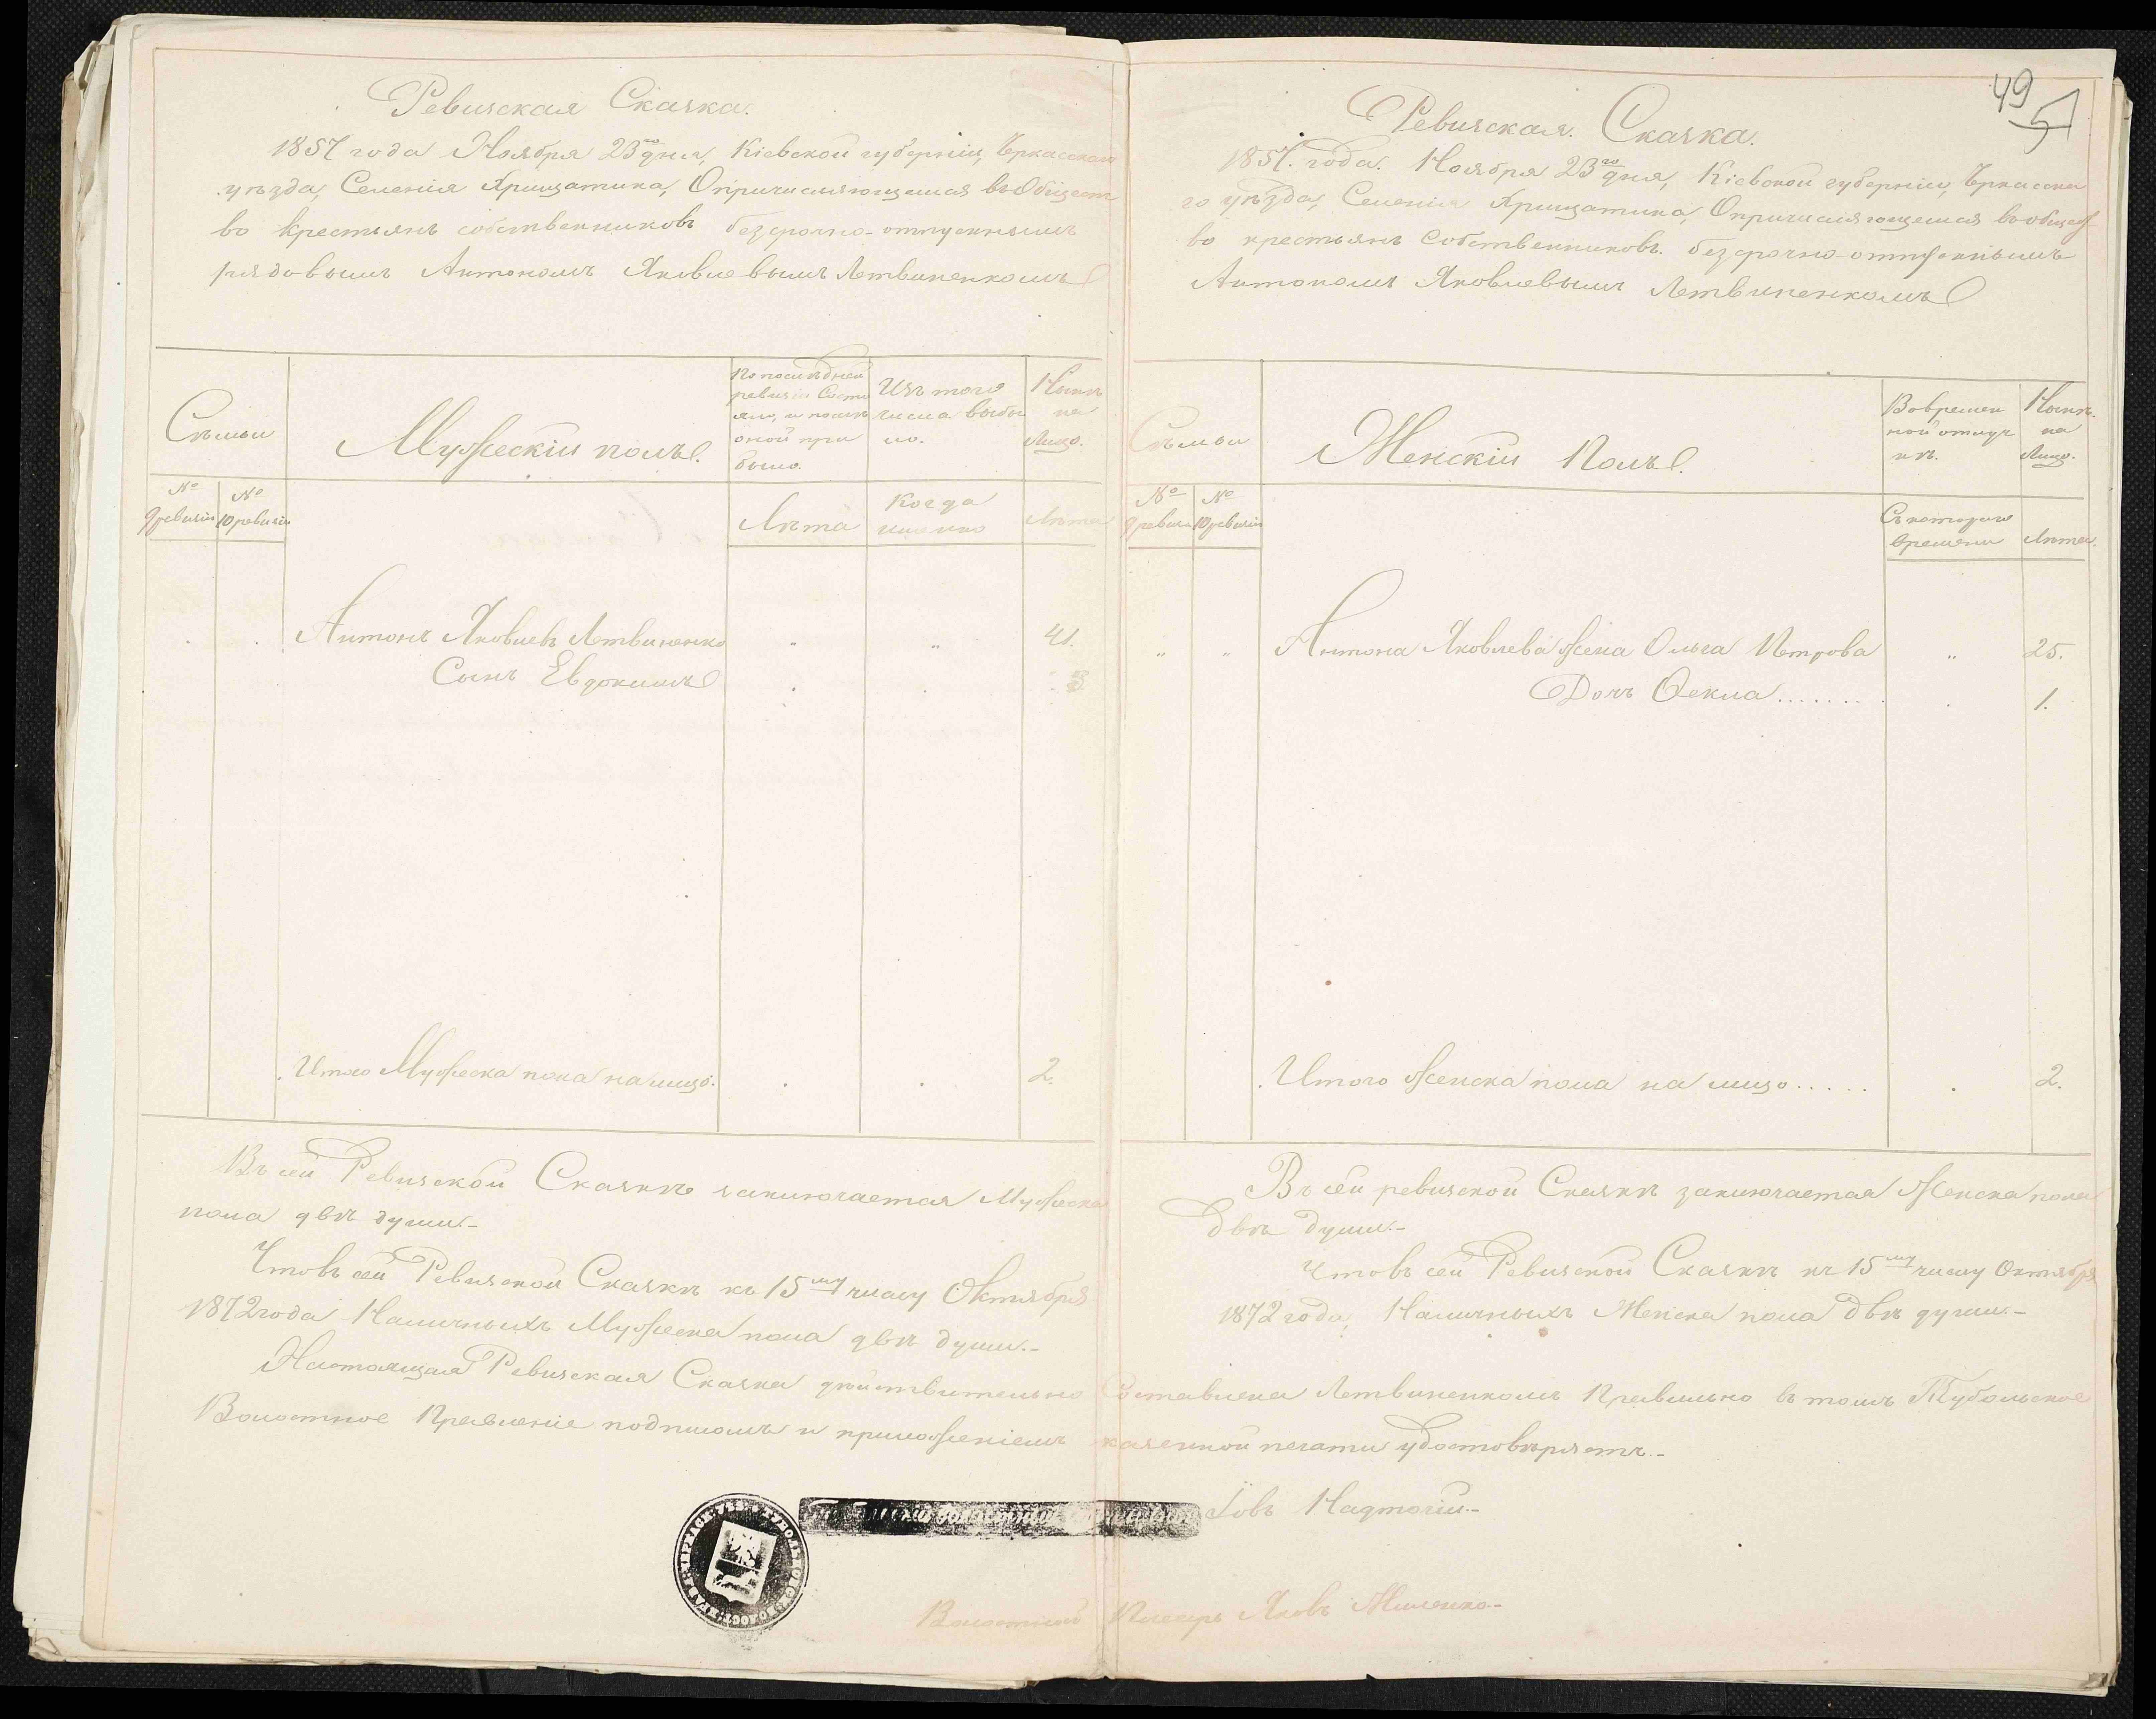 Ревизская Сказка.
1857 года Ноября 23го дня, Кіевской губерніи, Черкасскаго
уѣзда, Селенія Хрищатика, О причисляющемся въ Общест
во крестьянъ собственниковъ безсрочно-отпускнымъ
рядовымъ Антономъ Яковлевымъ Летвиненкомъ
Сѣмьи
Мужескій полъ.
По послѣдней
ревизіи Состо
яло, и послѣ
оной при
было.
Изъ того
числа выбы
ло.
Нынѣ
на
Лицо.
№
9 ревизіи
№
10 ревизіи
Лѣта
Когда
именно
Лѣта
Антонъ Яковлевъ Летвиненко " " 41.
Сынъ Евдокимъ 3
Итого Мужеска пола на лицо. 2.
Въ сей Ревизской Сказкѣ заключается Мужеска
пола двѣ души.-
Что въ сей Ревизской Сказкѣ къ 15му числу Октября
1872 года Наличныхъ Мужеска пола двѣ души.-
49
51
Ревизская Сказка.
1857. года. Ноября 23го дня, Кіевской губерніи, Черкасска
го уѣзда, Селенія Хрищатика, О причисляющемся въ общест
во крестьянъ Собственниковъ. безсрочно-отпускнымъ
Антономъ Яковлевымъ Летвиненкомъ
Сѣмьи
Женскій Полъ.
Во времен
ной отлуч
кѣ.
Нынѣ.
на
Лицо.
№
9 ревизіи
№
10 ревизіи
Съ котораго
времени
Лѣта.
" " Антона Яковлева жена Ольга Петрова " 25.
Дочь Ѳекла........ 1.
Итого женска пола на лицо..... 2.
Въ сей ревизской Сказкѣ заключается Женска пола
двѣ души.-
Что въ сей Ревизской Сказкѣ къ 15му числу Октября
1872 года, Наличныхъ Женска пола двѣ души.-
Настоящая Ревизская Сказка дѣйствительно Составлена Летвиненкомъ Правильно въ томъ Тубольское
Волостное Правленіе подписомъ и приложеніемъ казенной печати удостовѣряетъ.-
волостный Іовъ Надточій.-
Волостной Писарь Яковъ Миленко.-